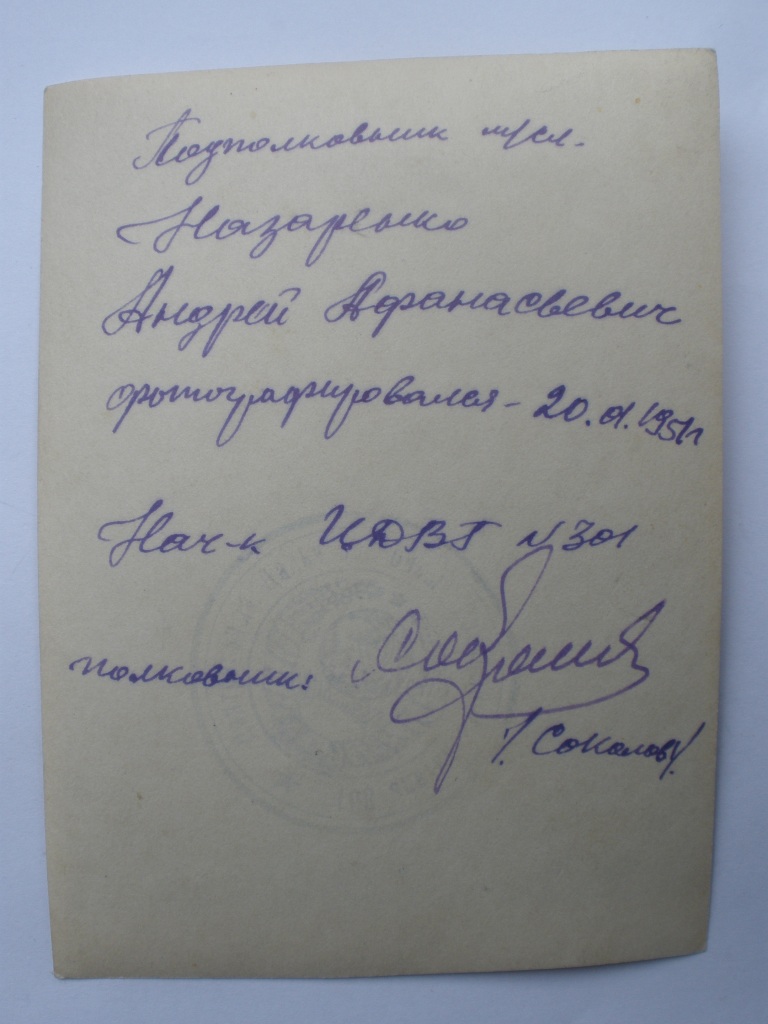 Подполковник м/сл.
Назаренко
Андрей Афанасьевич
фотографировался - 20.
Нач-к ЦДВТ №301
полковник:
/Соколов/